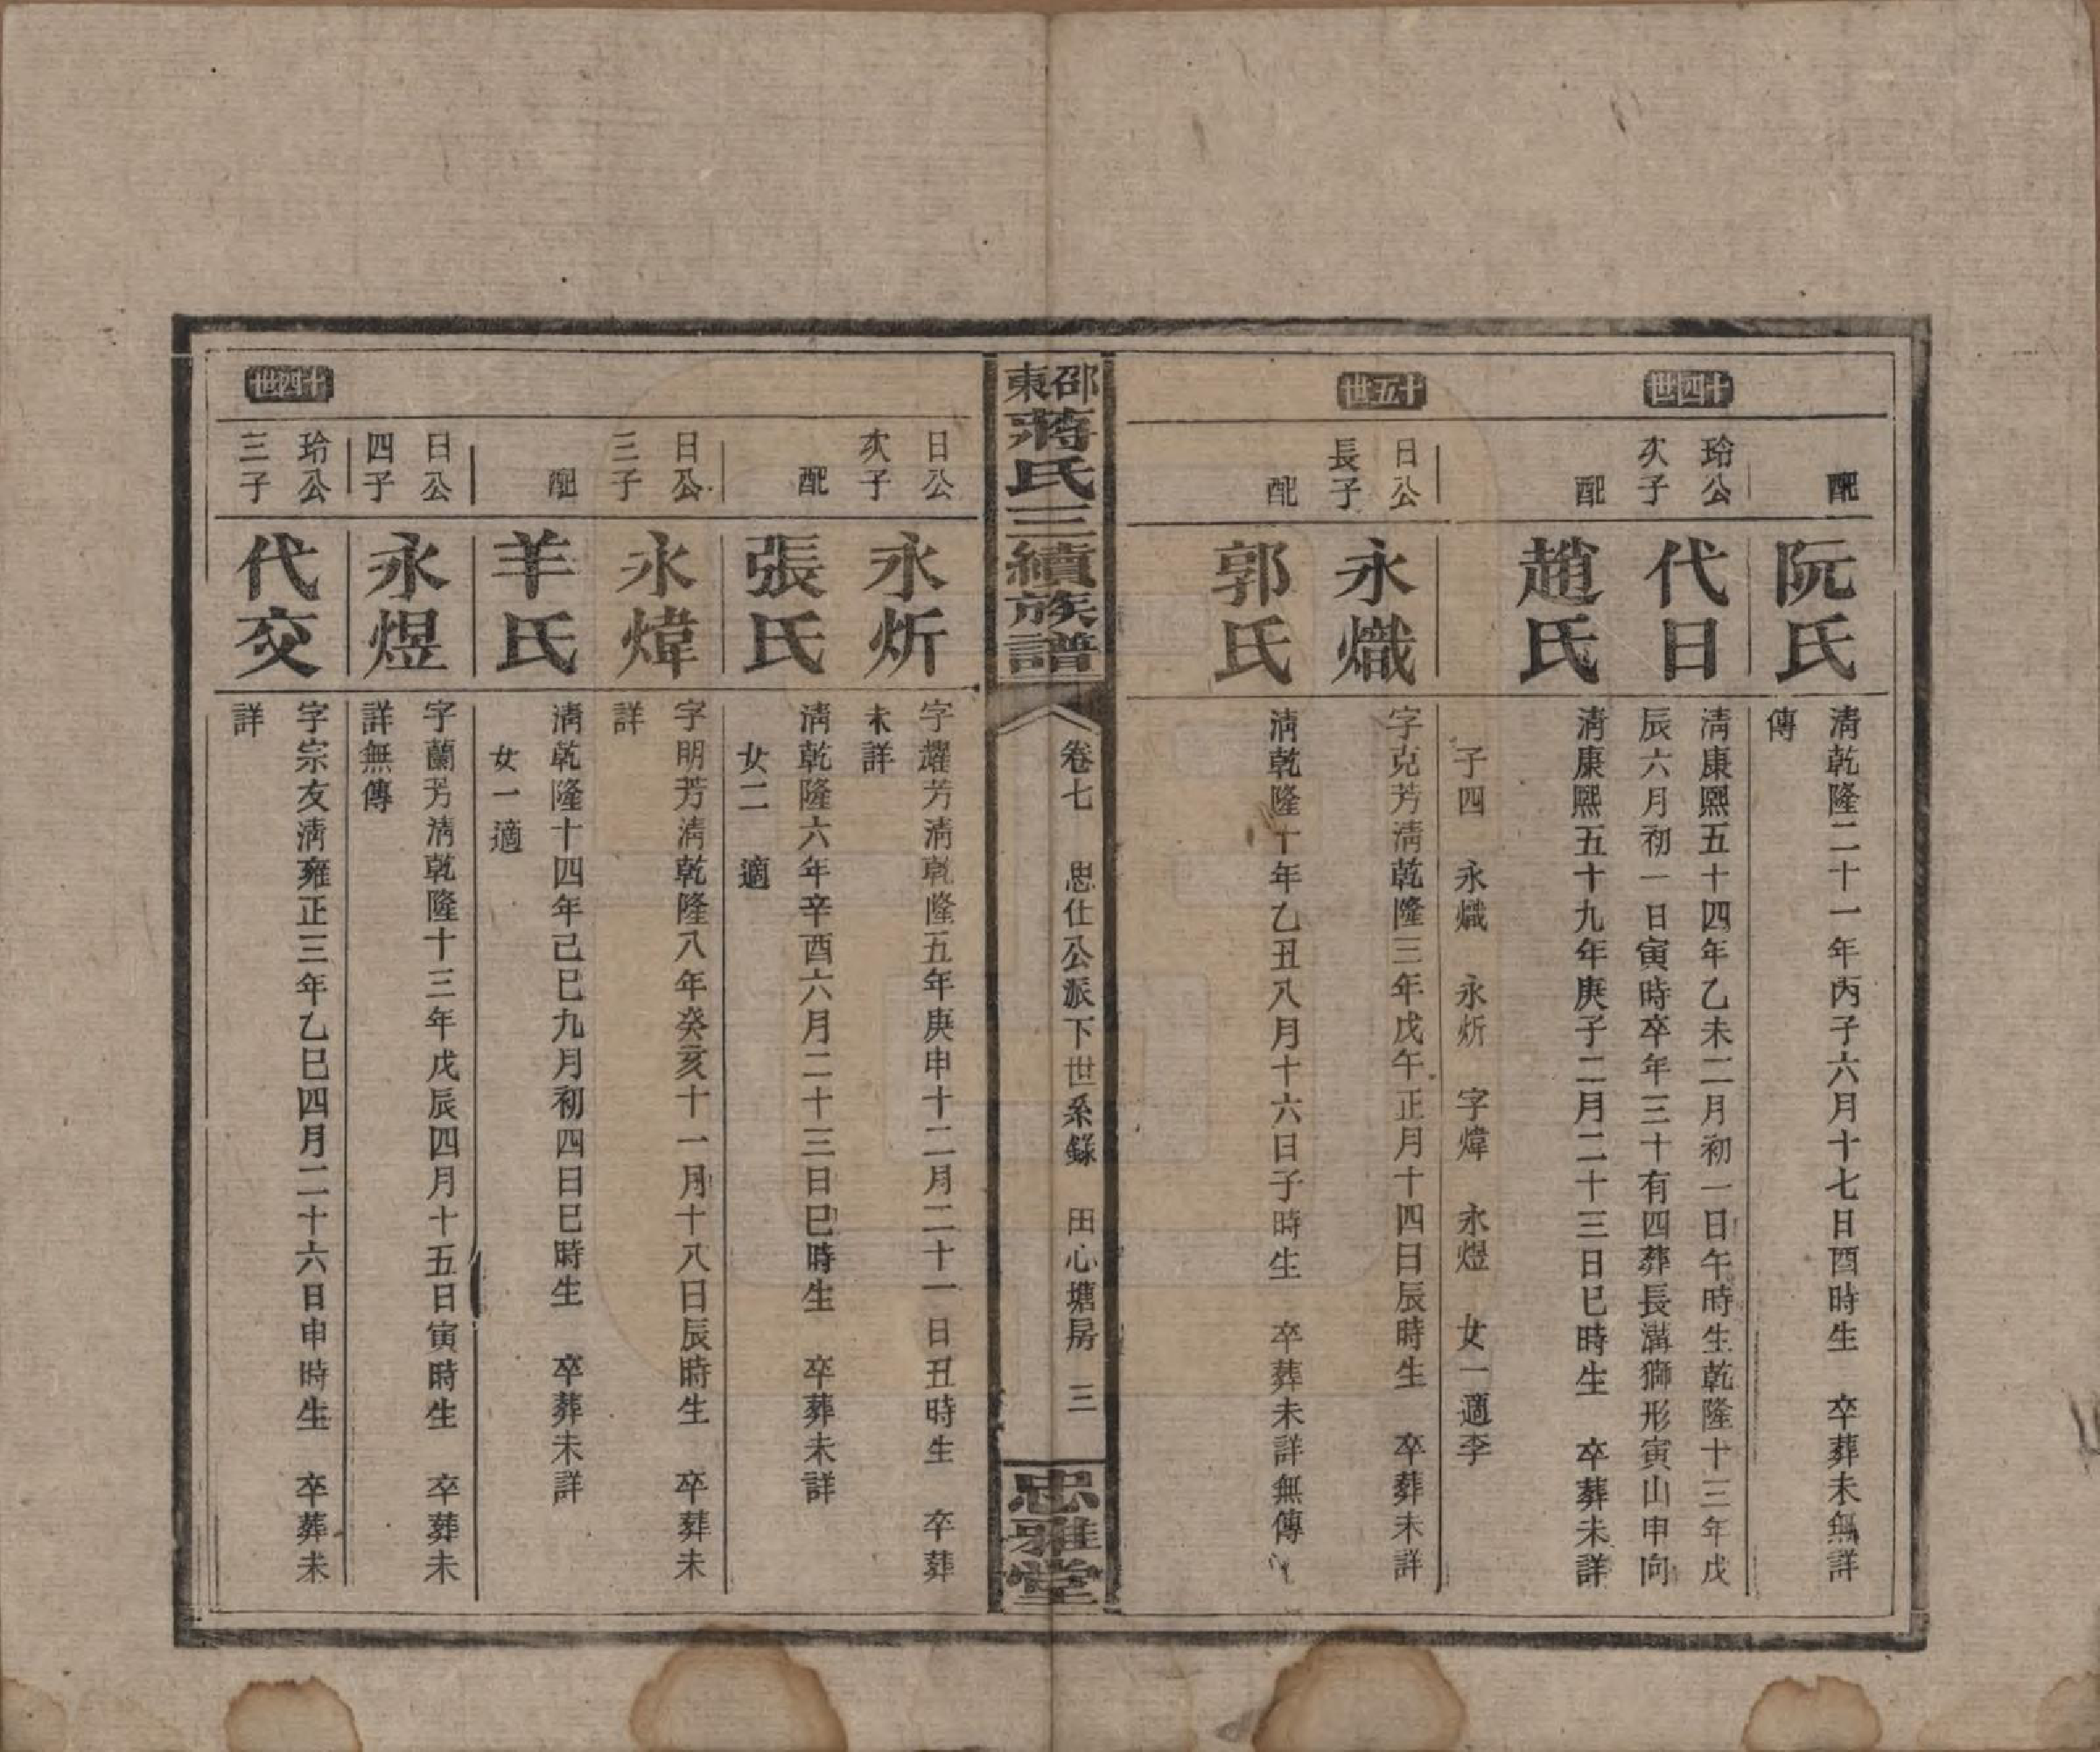 配
阮氏
淸乾隆二十一年丙子六月十七日酉時生　卒葬未無詳
傳
十四世
玲公
次子
代日
淸康熙五十四年乙未二月初一日午時生乾隆十三年戊
辰六月初一日寅時卒年三十有四葬長溝獅形寅山申向
配
趙氏
淸康熙五十九年庚子二月二十三日巳時生　卒葬未詳
子四　永熾　永炘　字煒　永煜　女一適李
十五世
日公
長子
永熾
字克芳淸乾隆三年戊午正月十四日辰時生　卒葬未詳
配
郭氏
淸乾隆十年乙丑八月十六日子時生　卒葬未詳無傳
邵東蔣氏三續族譜
卷七　思仕公派下世系錄　田心塘房　三
忠雅堂
日公
次子
永炘
字燿芳淸乾隆五年庚申十二月二十一日丑時生　卒葬
未詳
配
張氏
淸乾隆六年辛酉六月二十三日巳時生　卒葬未詳
女二　適
日公
三子
永煒
字明芳淸乾隆八年癸亥十一月十八日辰時生　卒葬未
詳
配
羊氏
淸乾隆十四年己巳九月初四日巳時生　卒葬未詳
女一適
日公
四子
永煜
字蘭芳淸乾隆十三年戊辰四月十五日寅時生　卒葬未
詳無傳
十四世
玲公
三子
代交
字宗友淸雍正三年乙巳四月二十六日申時生　卒葬未
詳